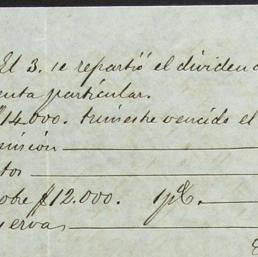 El 3. se repartió el dividen
enta particular.
$14.000. trimestre vencido el
misión
tos
obre $12.000.
servas